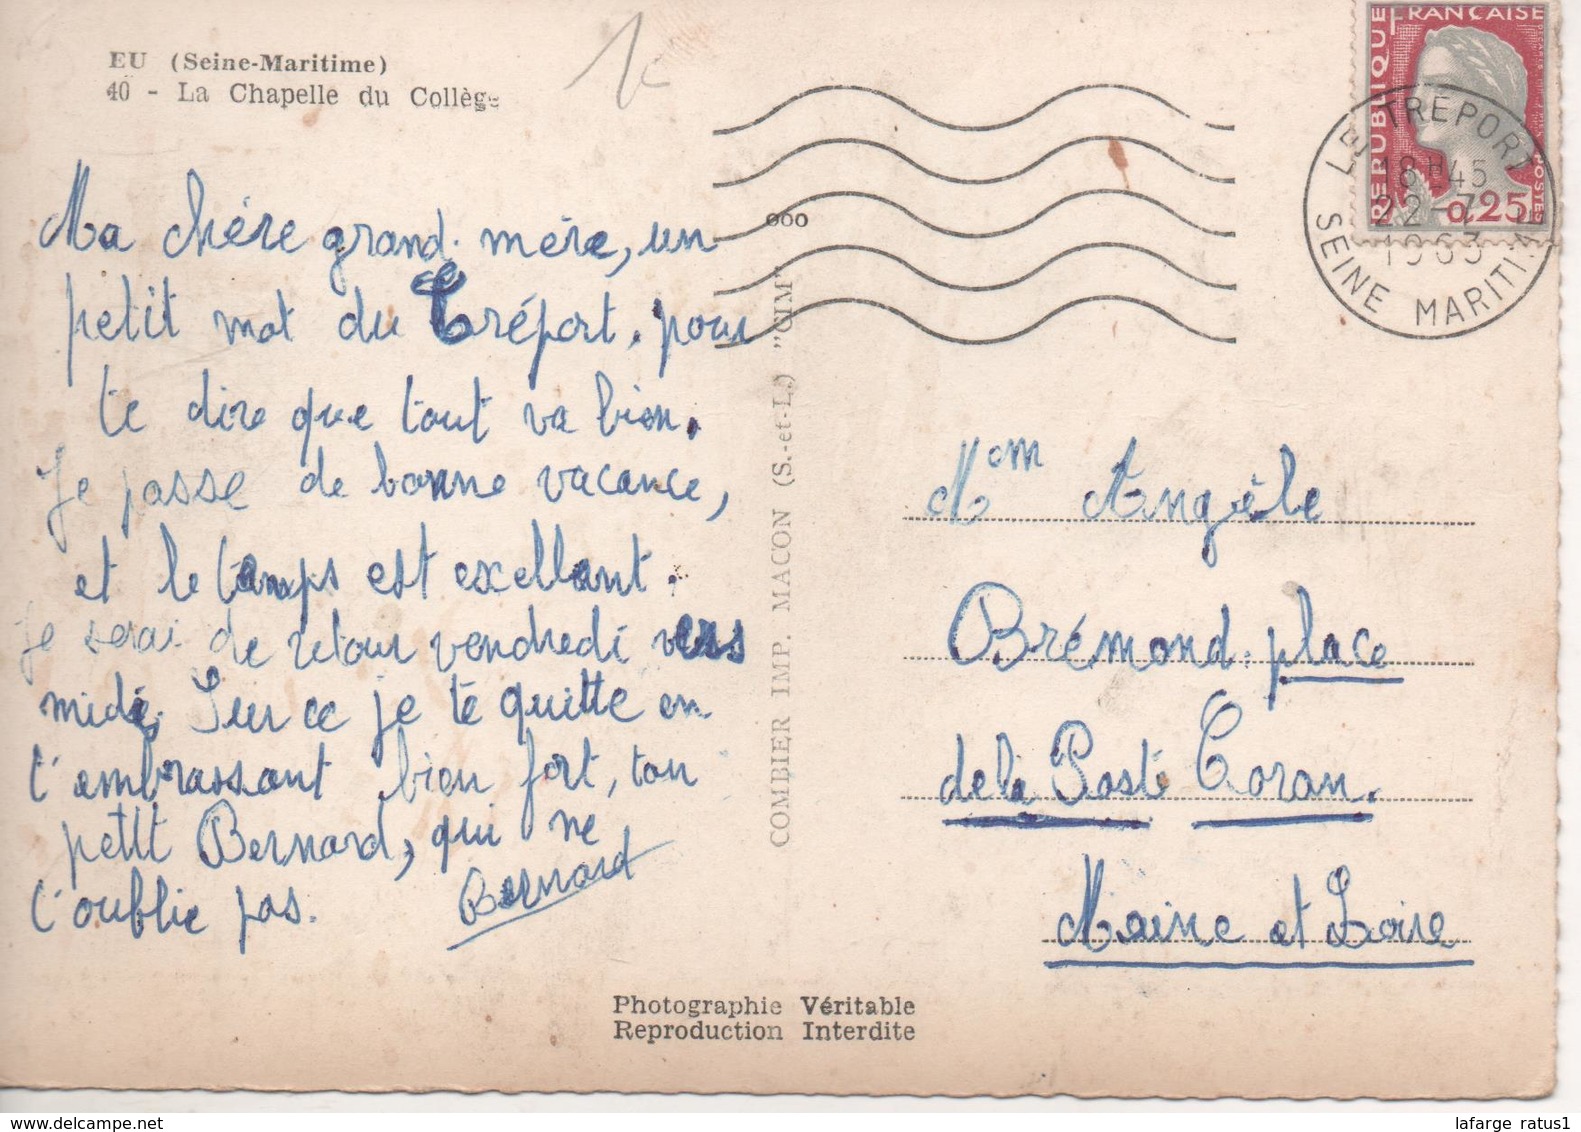 EU (Seine-Maritime)
40 - La Chapelle du Collège
Ma chére grand. mére, un
petit mot du Tréport. pour
te dire que tout va bien.
Je passe de bonne vacance,
et le temps est exellant.
Je serai de retour vendredi vers
midi. Sur ce je te quitte en
t'embrassant bien fort, ton
petit Bernard, qui ne
t'oublie pas.
Bernard
COMBIER IMP. MACON (S.-et-L.) "CIM"
ooo
REPUBLIQUE FRANÇAISE
POSTES
0,25
LE TRÉPORT
18H45
22-7
1963
SEINE MARITIME
Mom Angèle
Brémond. place
de la Poste Coran.
Maine et Loire
Photographie Véritable
Reproduction Interdite
lafarge ratus1